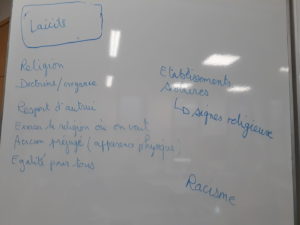 Laïcité
Religion
Doctrine/croyance
Respect d'autrui
Exercer la religion où on veut
Aucun préjugé (apparence physique)
Egalité pour tous
Etablissements
scolaires
↳ signes religieuse
Racisme